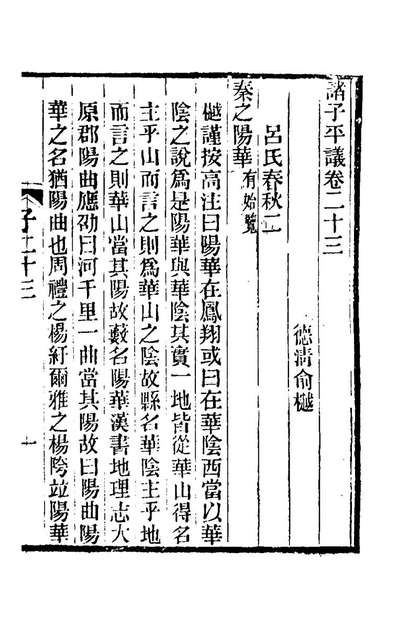 諸子平議卷二十三
德清俞樾
呂氏春秋二
秦之陽華有始覽
樾謹按高注曰陽華在鳳翔或曰在華陰西當以華
陰之說爲是陽華與華陰其實一地皆從華山得名
主乎山而言之則爲華山之陰故縣名華陰主乎地
而言之則華山當其陽故藪名陽華漢書地理志太
原郡陽曲應劭曰河千里一曲當其陽故曰陽曲陽
華之名猶陽曲也周禮之楊紆爾雅之楊陓竝陽華
子二十三
一